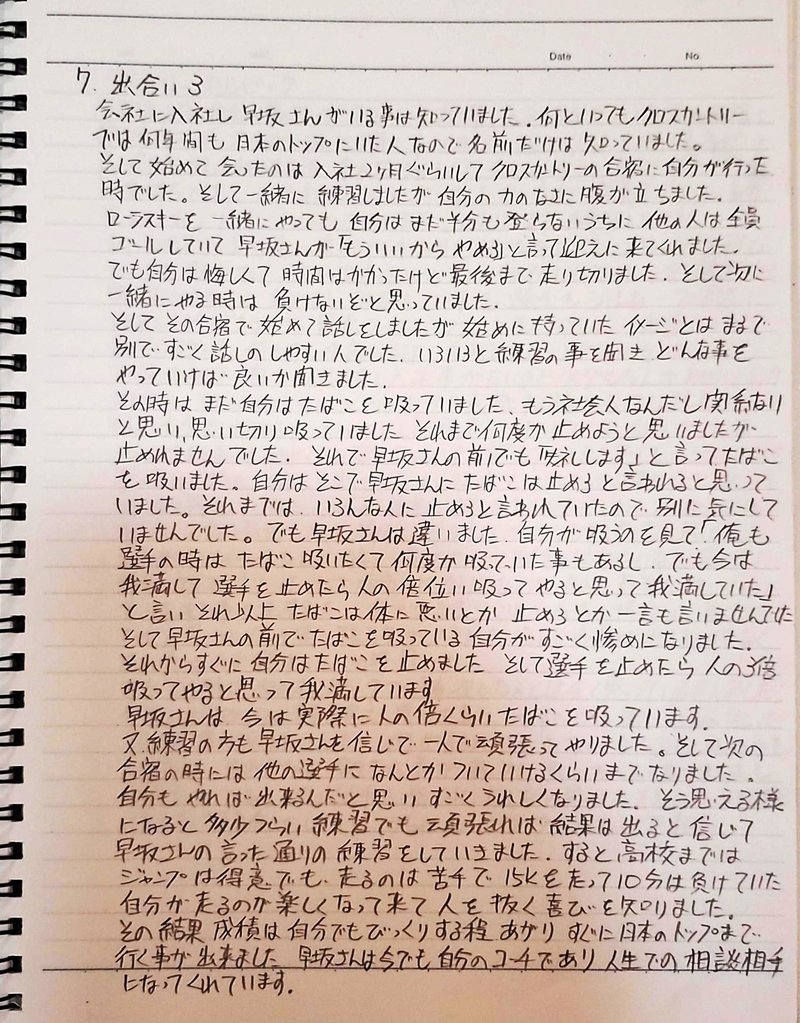 Date ・ ・ No.
7. 出合い3
会社に入社し早坂さんがいる事は知っていました。何といってもクロスカントリー
では何年間も日本のトップにいた人なので名前だけは知っていました。
そして始めて会ったのは入社2ヶ月ぐらいしてクロスカントリーの合宿に自分が行った
時でした。そして一緒に練習しましたが自分の力のなさに腹が立ちました。
ローラスキーを一緒にやっても自分はまだ半分も登らないうちに他の人は全員
ゴールしていて早坂さんが「もういいからやめろ」と言って迎えに来てくれました。
でも自分は悔しくて時間はかかったけど最後まで走り切りました。そして次に
一緒にやる時は負けないぞと思っていました。
そしてその合宿で始めて話しをしましたが始めに持っていたイメージとはまるで
別ですごく話しのしやすい人でした。いろいろと練習の事を聞きどんな事を
やっていけば良いか聞きました。
その時はまだ自分はたばこを吸っていました。もう社会人なんだし関係ない
と思い、思い切り吸っていました それまで何度か止めようと思いましたが
止めれませんでした。それで早坂さんの前でも「失礼します」と言ってたばこ
を吸いました。自分はそこで早坂さんにたばこは止めろと言われると思って
いました。それまでは、いろんな人に止めろと言われていたので別に気にして
いませんでした。でも早坂さんは違いました。自分が吸うのを見て「俺も
選手の時はたばこ吸いたくて何度か吸っていた事もあるし、でも今は
我満して選手を止めたら人の倍位い吸ってやると思って我満していた」
と言いそれ以上たばこは体に悪いとか止めろとか一言も言いませんでした
そして早坂さんの前でたばこを吸っている自分がすごく惨めになりました。
それからすぐに自分はたばこを止めました そして選手を止めたら人の3倍
吸ってやると思って我満しています
早坂さんは今は実際に人の倍くらいたばこを吸っています。
又、練習の方も早坂さんを信じて一人で頑張ってやりました。そして次の
合宿の時には他の選手になんとかついていけるくらいまでなりました。
自分もやれば出来るんだと思いすごくうれしくなりました。そう思える様
になると多少つらい練習でも頑張れば結果は出ると信じて
早坂さんの言った通りの練習をしていきました。すると高校までは
ジャンプは得意でも、走るのは苦手で15Kを走って10分は負けていた
自分が走るのが楽しくなって来て人を抜く喜びを知りました。
その結果成績は自分でもびっくりする程あがりすぐに日本のトップまで
行く事が出来ました 早坂さんは今でも自分のコーチであり人生での相談相手
になってくれています。